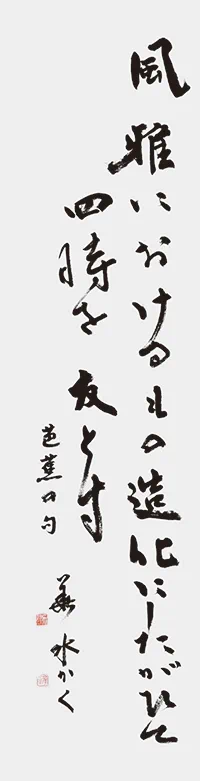 風雅におけるもの造化にしたがひて
四時を友とす
芭蕉の句
華水かく